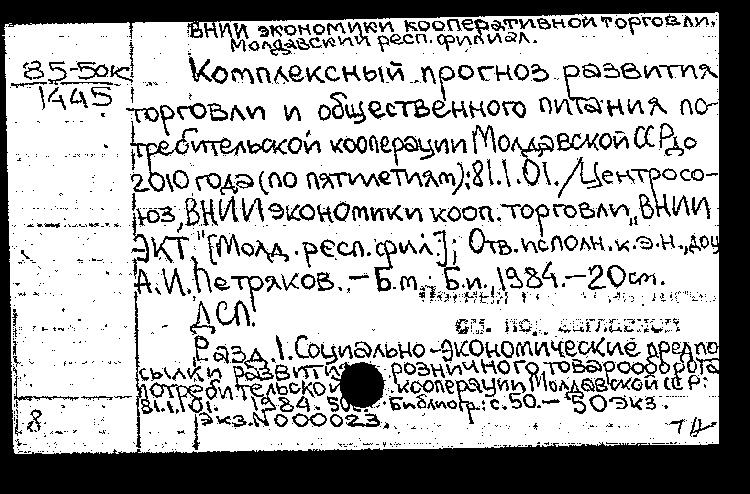 ВНИИ экономики кооперативной торговли.
Молдавский респ. филиал.
85-50к
1445
Комплексный прогноз развития
торговли и общественного питания по-
требительской кооперации Молдавской ССР до
2010 года (по пятилетиям): 81.1.01. / Центросо-
юз, ВНИИ экономики кооп. торговли, "ВНИИ
ЭКТ." [Молд. респ. фил.]; Отв. исполн. к.э.н., доц
А.И. Петряков. – Б.м.: Б.и., 1984. – 20 см.
ДСП.
см. под заглавием
Разд. 1. Социально-экономические предпо
сылки развития розничного товарооборота
потребительской кооперации Молдавской ССР:
81.1.01. 1984. 50 с. Библиогр.: с. 50. – 50 экз.
Экз. N 000023.
8